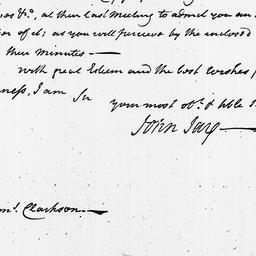 at their last Meeting to admit you an
of it; as you will perceive by the enclosed
their Minutes —
with great Esteem and the best wishes
I am Sir
your most obt. & hble
John Jay —
Clarkson. —